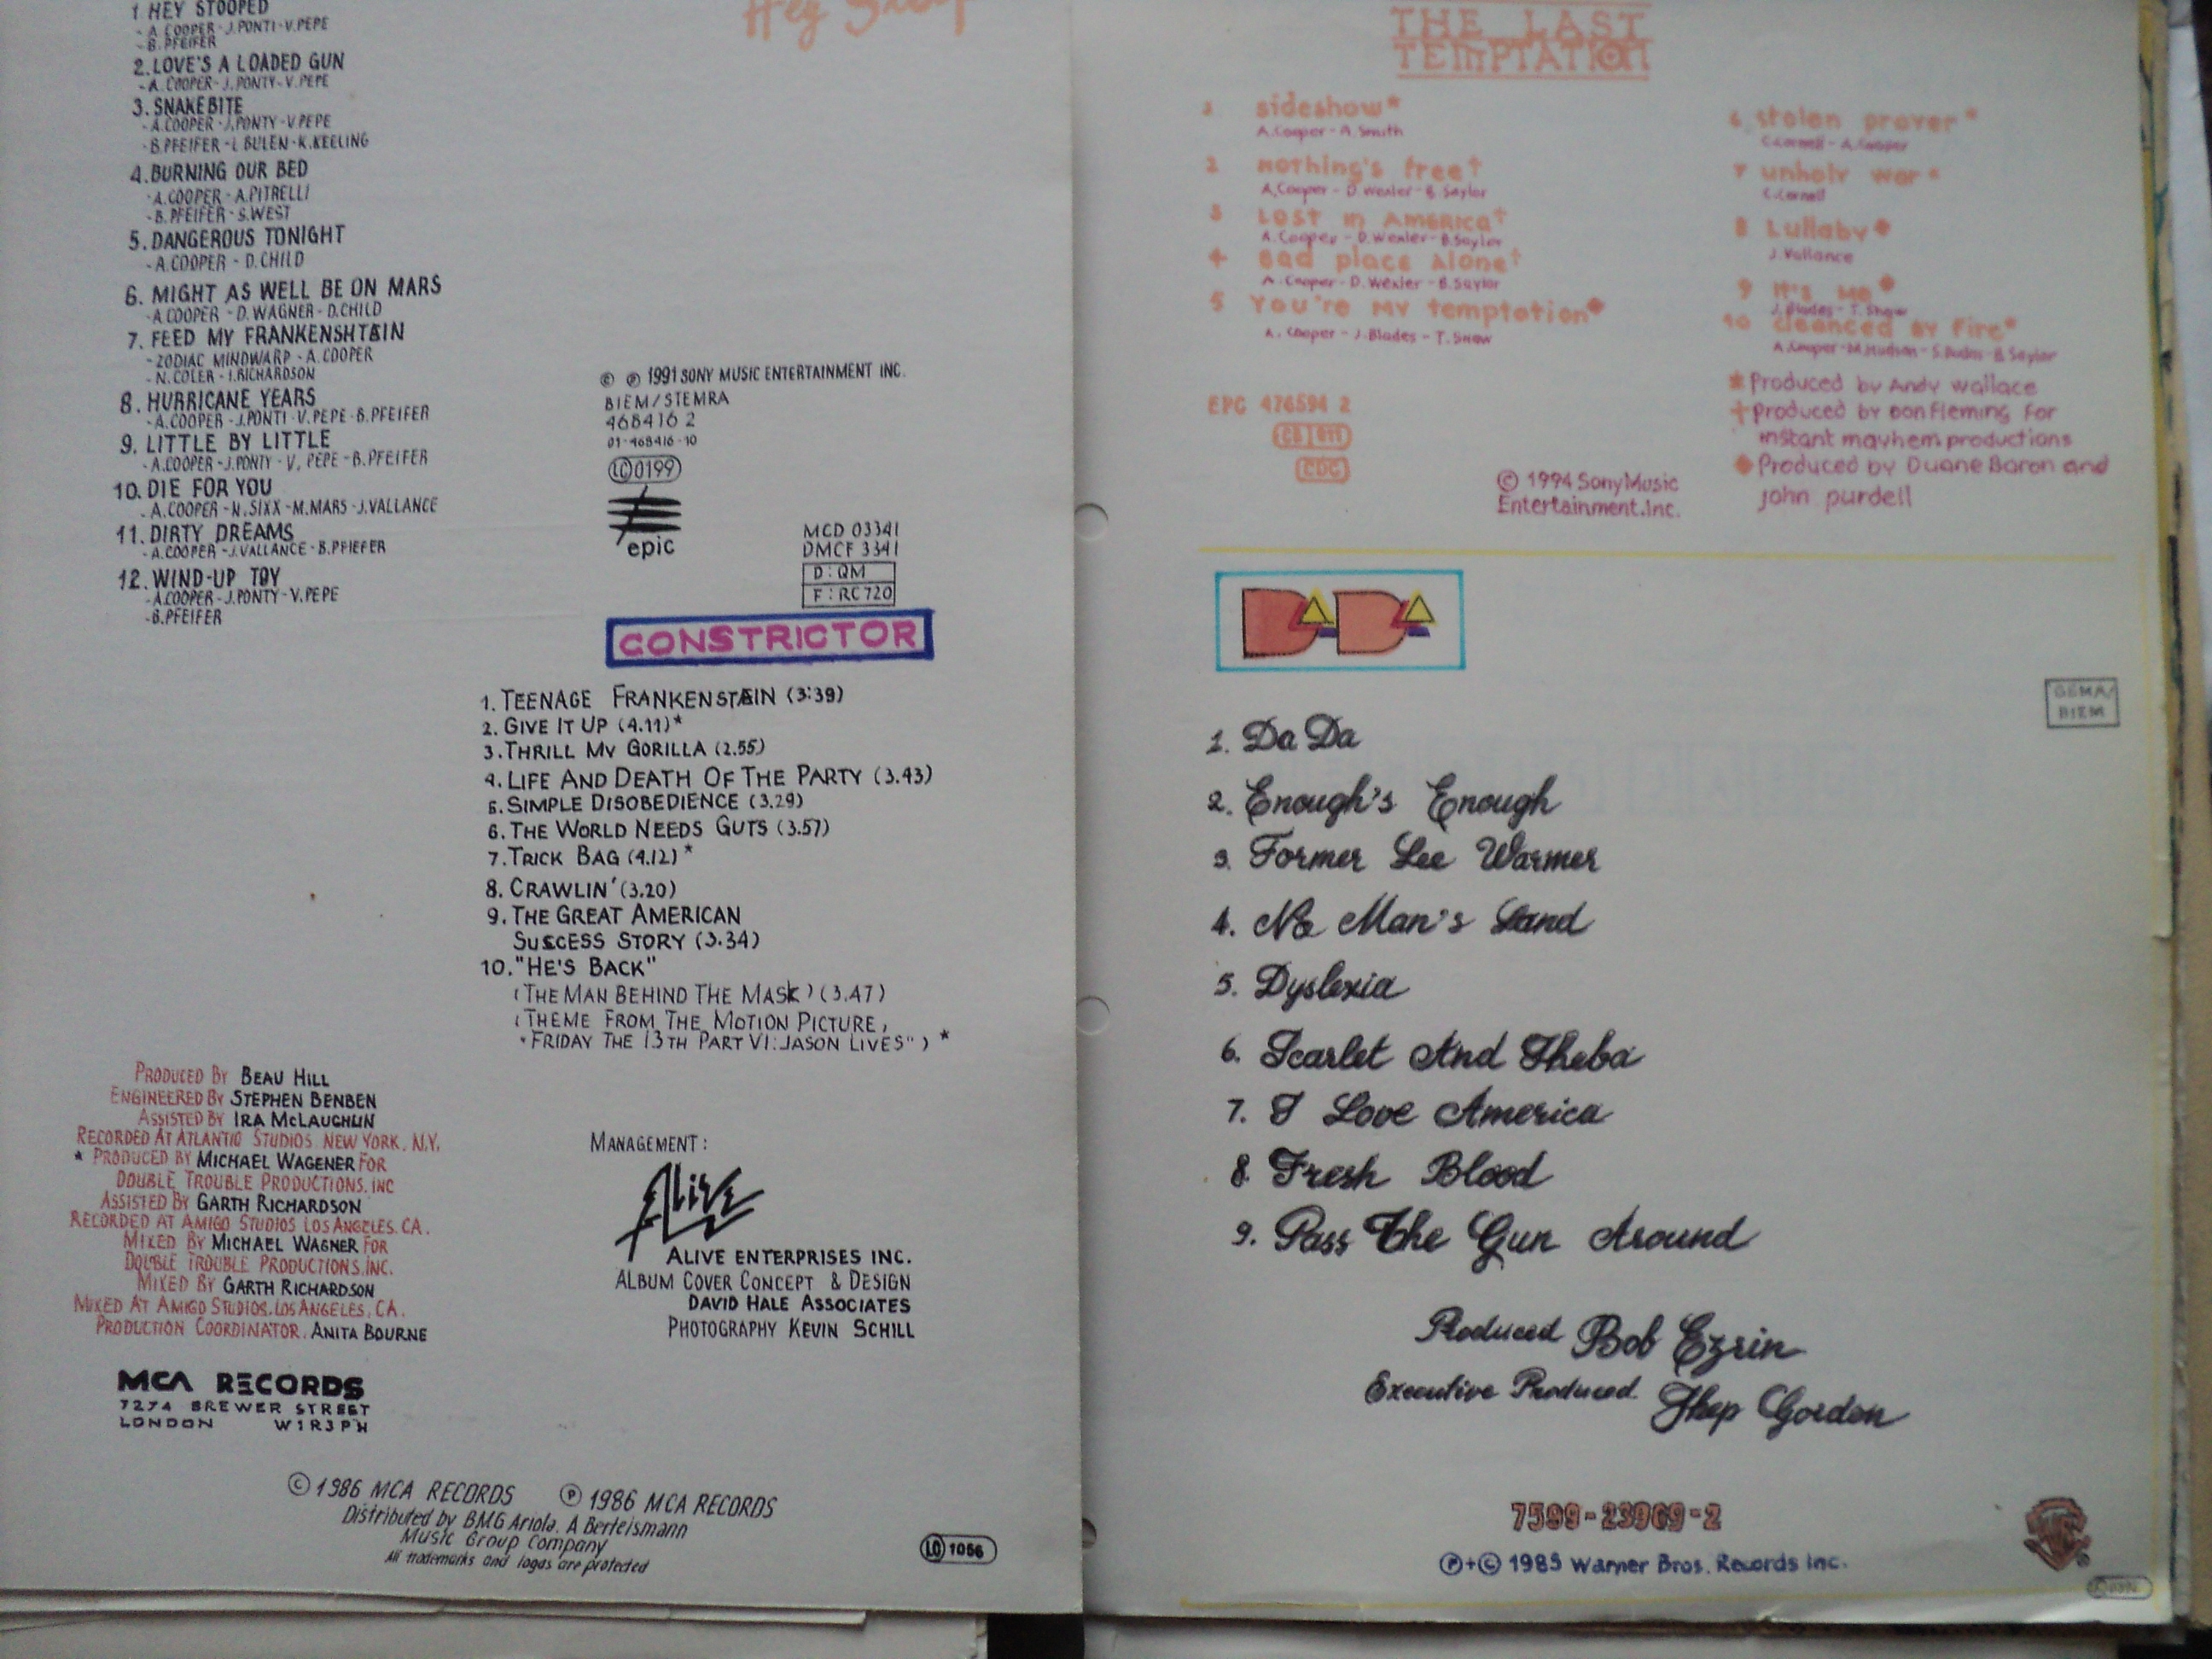 1 HEY STOOPED
- A COOPER - J.PONTI - V.PEPE
- B.PFEIFER
2. LOVE'S A LOADED GUN
- A. COOPER - J. PONTY - V. PEPE
3. SNAKEBITE
- A.COOPER - J.PONTY - V.PEPE
- B.PFEIFER - L BULEN - K.KEELING
4. BURNING OUR BED
- A.COOPER - A.PITRELLI
- B. PFEIFER - S.WEST
5. DANGEROUS TONIGHT
- A.COOPER - D.CHILD
6. MIGHT AS WELL BE ON MARS
- A.COOPER - D. WAGNER - D.CHILD
7. FEED MY FRANKENSHTEIN
- ZODIAC MINDWARP - A.COOPER
- N. COLER - I.RICHARDSON
8. HURRICANE YEARS
- A.COOPER - J.PONTI - V. PEPE - B.PFEIFER
9. LITTLE BY LITTLE
- A.COOPER - J.PONTY - V, PEPE - B.PFEIFER
10. DIE FOR YOU
- A.COOPER - N.SIXX - M.MARS - J.VALLANCE
11. DIRTY DREAMS
- A.COOPER - J.VALLANCE - B.PFIEFER
12. WIND-UP TOY
- A.COOPER - J.PONTY - V.PEPE
- B.PFEIFER
© ℗ 1991 SONY MUSIC ENTERTAINMENT INC.
BIEM/STEMRA
468416 2
01-468416-10
LC 0199
epic
MCD 03341
DMCF 3341
D: QM
F: RC 720
CONSTRICTOR
1. TEENAGE FRANKENSTEIN (3:39)
2. GIVE IT UP (4.11)*
3. THRILL MY GORILLA (2.55)
4. LIFE AND DEATH OF THE PARTY (3.43)
5. SIMPLE DISOBEDIENCE (3.29)
6. THE WORLD NEEDS GUTS (3.57)
7. TRICK BAG (4.12)*
8. CRAWLIN' (3.20)
9. THE GREAT AMERICAN
SUCCESS STORY (3.34)
10. "HE'S BACK"
(THE MAN BEHIND THE MASK) (3.47)
(THEME FROM THE MOTION PICTURE,
"FRIDAY THE 13TH PART VI: JASON LIVES") *
PRODUCED BY BEAU HILL
ENGINEERED BY STEPHEN BENBEN
ASSISTED BY IRA McLAUGHLIN
RECORDED AT ATLANTIC STUDIOS NEW YORK. N.Y.
* PRODUCED BY MICHAEL WAGENER FOR
DOUBLE TROUBLE PRODUCTIONS, INC
ASSISTED BY GARTH RICHARDSON
RECORDED AT AMIGO STUDIOS LOS ANGELES. CA.
MIXED BY MICHAEL WAGNER FOR
DOUBLE TROUBLE PRODUCTIONS, INC.
MIXED BY GARTH RICHARDSON
MIXED AT AMIGO STUDIOS. LOS ANGELES, CA.
PRODUCTION COORDINATOR. ANITA BOURNE
MANAGEMENT:
ALIVE
ALIVE ENTERPRISES INC.
ALBUM COVER CONCEPT & DESIGN
DAVID HALE ASSOCIATES
PHOTOGRAPHY KEVIN SCHILL
MCA RECORDS
7274 BREWER STREET
LONDON W1R3PH
© 1986 MCA RECORDS ℗ 1986 MCA RECORDS
Distributed by BMG Ariola. A Bertelsmann
Music Group Company
All trademarks and logos are protected
LC 1056
THE LAST
TEMPTATION
1 sideshow*
A.Cooper - A.Smith
2 nothing's free†
A.Cooper - D Wexler - B.Saylor
3 Lost in America†
A.Cooper - D.Wexler - B.Saylor
4 Bad place alone†
A.Cooper - D.Wexler - B.Saylor
5 You're My temptation◆
A. Cooper - J.Blades - T. Shaw
6 stolen prayer*
C.Cornell - A.Cooper
7 unholy war*
C.Cornell
8 Lullaby◆
J.Vallance
9 It's me◆
J.Blades - T.Shaw
10 cleanced By Fire*
A.Cooper - M.Hudson - S.Dudas - B Saylor
* Produced by Andy Wallace
† Produced by Don Fleming For
instant mayhem productions
◆ Produced by Duane Baron and
john purdell
EPC 476594 2
CB 811
CDC
© 1994 Sony Music
Entertainment.Inc.
DADA
GEMA/
BIEM
1. Da Da
2. Enough's Enough
3. Former Lee Warmer
4. No Man's Land
5. Dyslexia
6. Scarlet And Sheba
7. I Love America
8. Fresh Blood
9. Pass The Gun Around
Produced Bob Ezrin
Executive Produced Shep Gordon
7599-23969-2
℗+© 1983 Warner Bros. Records Inc.